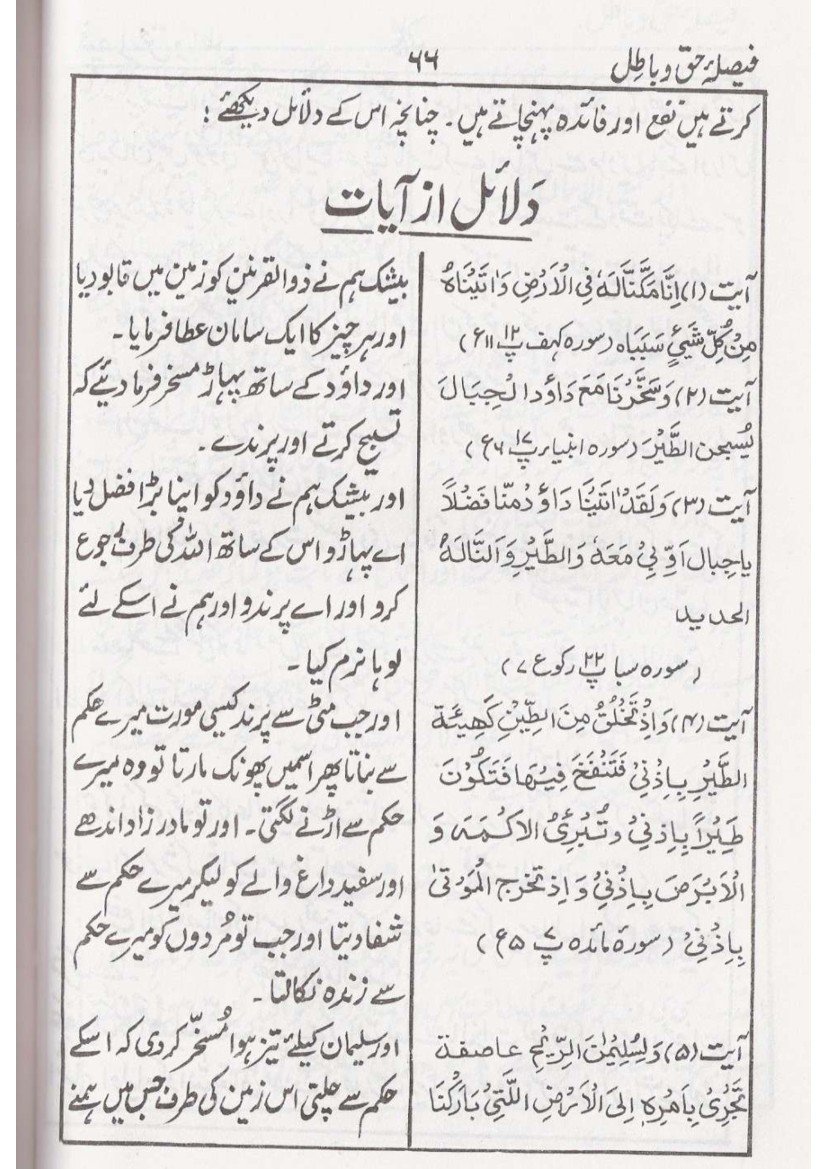 فیصلۂ حق و باطل
۶۶
کرتے ہیں نفع اور فائدہ پہنچاتے ہیں۔ چنانچہ اس کے دلائل دیکھئے :
دَلائل از آیات
آیت (۱) اِنَّا مَکَّنَّالَہٗ فِی الْاَرْضِ وَاٰتَیْنَاہُ
مِنْ کُلِّ شَیْیٍٔ سَبَبَاہ (سورہ کہف پ۱۲ ع۱۱)
آیت (۲) وَسَخَّرْنَا مَعَ دَاوٗدَ الْجِبَالَ
یُسبحن الطَّیْرَ (سورہ انبیاء پ۱۷ ع۶)
آیت (۳) وَلَقَدْ اٰتَیْنَا دَاوٗدُ مِنَّا فَضْلًا
یاجِبال اَوِّبِیْ مَعَہٗ وَالطَّیْرُ وَالنَّالَہُ
الحدید
(سورہ سبا پ۲۲ رکوع ۷)
آیت (۴) وَاِذْ تَخْلُقُ مِنَ الطِّیْنِ کَھِیْئَۃ
الطَّیْرِ بِاِذْنِیْ فَتَنْفَخَ فِیْھَا فَتَکُوْنَ
طَیْرًا بِاِذْنِیْ وتُبْرِیُٔ الاکْمَہَ وَ
الْاَبْرَصَ بِاِذْنِیْ وَاِذ تخرج الْمَوْتیٰ
بِاِذْنِیْ (سورۂ مائدہ پ۷ ع۵)
آیت (۵) وَلِسُلِیْمٰنَ الرِّیْحَ عاصفۃ
تَجْرِیْ بِاَمْرِہٖ اِلیَ الْاَرْضِ اللَّتِیْ بَارَکْنَا
بیشک ہم نے ذوالقرنین کو زمین میں قابو دیا
اور ہر چیز کا ایک سامان عطا فرمایا۔
اور داؤد کے ساتھ پہاڑ مسخر فرما دیئے کہ
تسبیح کرتے اور پرندے۔
اور بیشک ہم نے داؤد کو اپنا بڑا فضل دیا
اے پہاڑو اس کے ساتھ اللہ کی طرف رجوع
کرو اور اے پرندو اور ہم نے اسکے لئے
لوہا نرم کیا۔
اور جب مٹی سے پرند کیسی مورت میرے حکم
سے بناتا پھر اسمیں پھونک مارتا تو وہ میرے
حکم سے اڑنے لگتی۔ اور تو مادر زاد اندھے
اور سفید داغ والے کو لیکر میرے حکم سے
شفا دیتا اور جب تو مُردوں کو میرے حکم
سے زندہ نکالتا۔
اور سلیمان کیلئے تیز ہوا مُسخّر کر دی کہ اسکے
حکم سے چلتی اس زمین کی طرف جس میں ہمنے